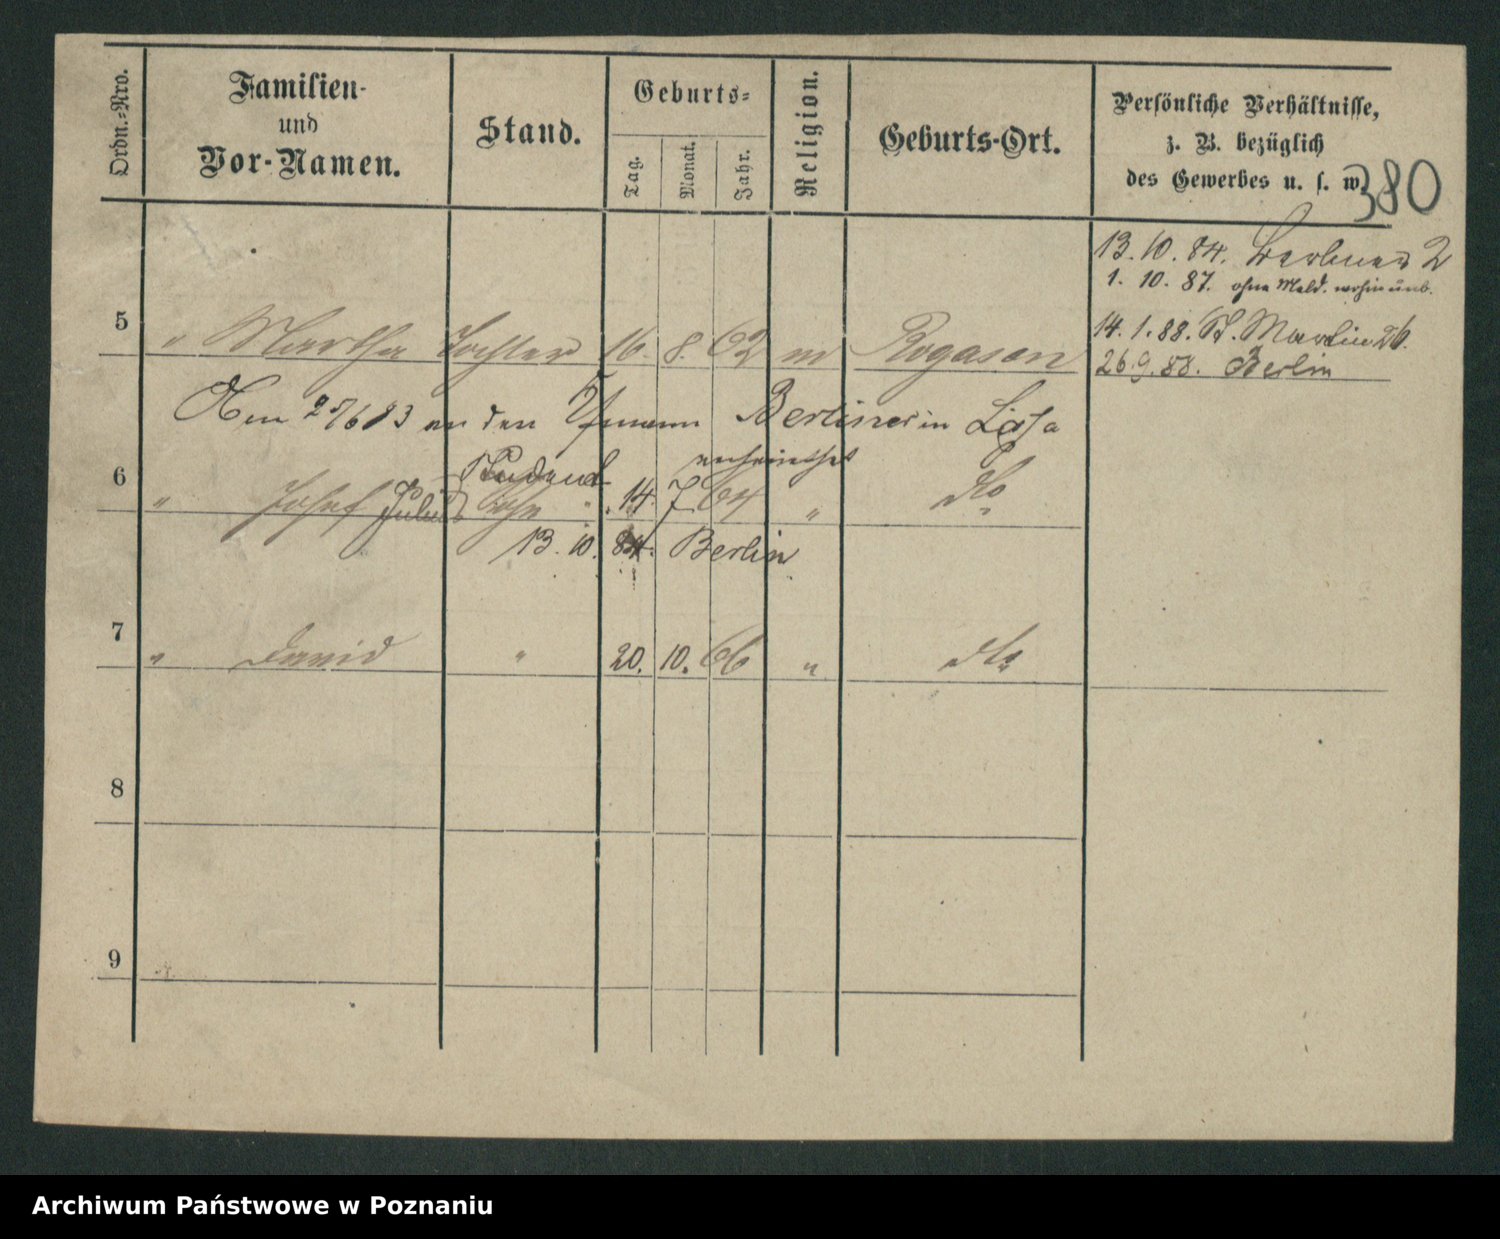 Ordn.-Nro.
Familien-
und
Vor-Namen.
Stand.
Geburts-
Tag.
Monat.
Jahr.
Religion.
Geburts-Ort.
Persönliche Verhältnisse,
z. B. bezüglich
des Gewerbes u. s. w.
380
13. 10. 84. Berliner 2
1. 10. 87. ohne Meld. wohin unb.
5 " Martha Tochter 16. 8. 62 m Rogasen
14. 1. 88. St. Martin 26.
26. 9. 88. Berlin
Am 25/6 83 an den Berliner in Lissa
verheirathet
6 " Josef Julius 14. 7. 64 " dto
13. 10. 84. Berlin
7 " David " 20. 10. 66 " dto
8
9
Archiwum Państwowe w Poznaniu